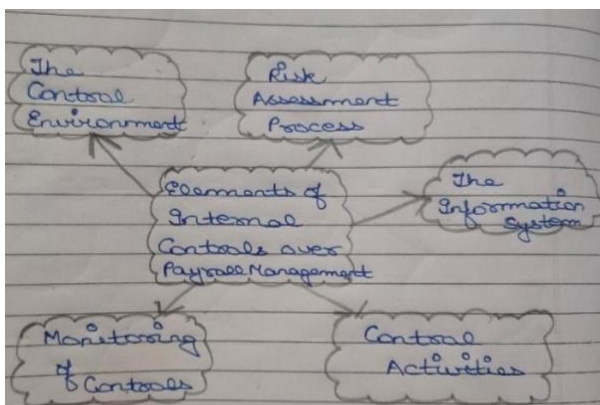 The
Control
Environment
Risk
Assessment
Process
Elements of
Internal
Controls over
Payroll Management
The
Information
System
Monitoring
of Controls
Control
Activities